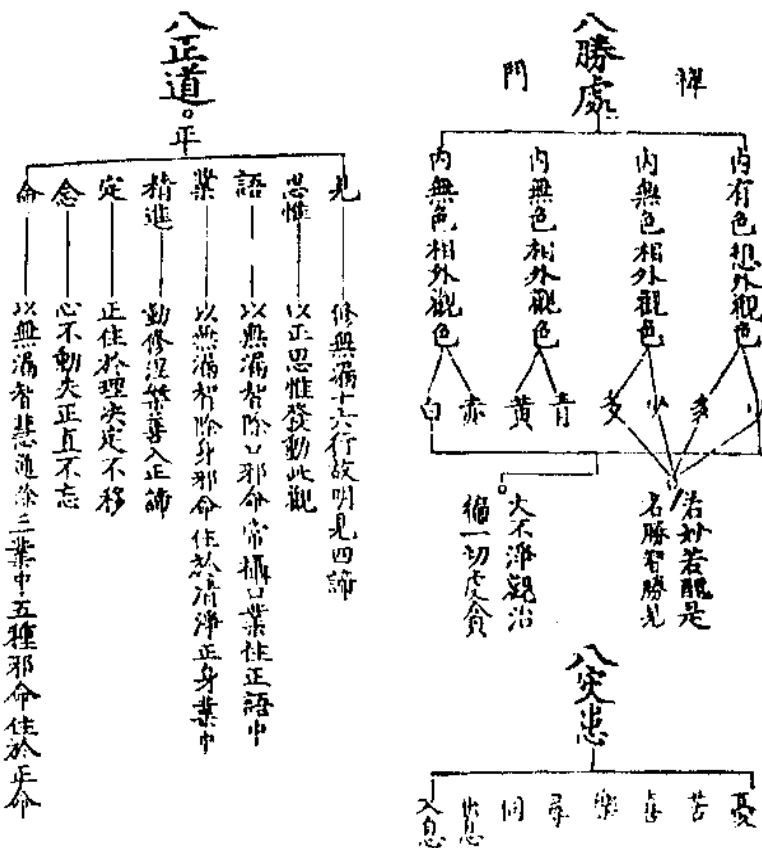 八勝處
禪
門
內有色想外觀色
內無色相外觀色
內無色相外觀色
內無色相外觀色
少
多
少
多
青
黃
赤
白
若妙若醜是
名勝智勝見
大不淨觀治
徧一切處貪
八灾患
憂
苦
喜
樂
尋
伺
出息
入息
八正道。平
見
思惟
語
業
精進
定
念
命
修無漏十六行故明見四諦
以正思惟發動此觀
以無漏智除口邪命常攝口業住正語中
以無漏智除身邪命住於清淨正身業中
勤修涅槃善入正諦
正住於理決定不移
心不動失正直不忘
以無漏智慧通除三業中五種邪命住於正命